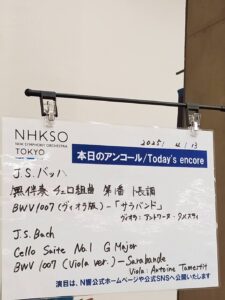 NHKSO
NHK SYMPHONY ORCHESTRA
TOKYO
2025/ 4/13
本日のアンコール/Today's encore
J.S.バッハ
無伴奏チェロ組曲 第1番 ト長調
BWV1007(ヴィオラ版)-「サラバンド」
ヴィオラ:アントワーヌ・タメスティ
J.S.Bach
Cello Suite No.1 G Major
BWV 1007 (Viola ver.) - Sarabande
Viola: Antoine Tamestit
演目は、N響公式ホームページや公式SNSへ公開いたします